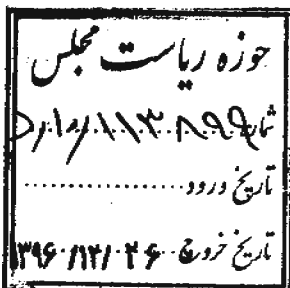 حوزه ریاست مجلس
شماره ۱۱۳۸۹۹/۱/د
تاریخ ورود
تاریخ خروج ۱۳۹۶/۱۲/۲۶